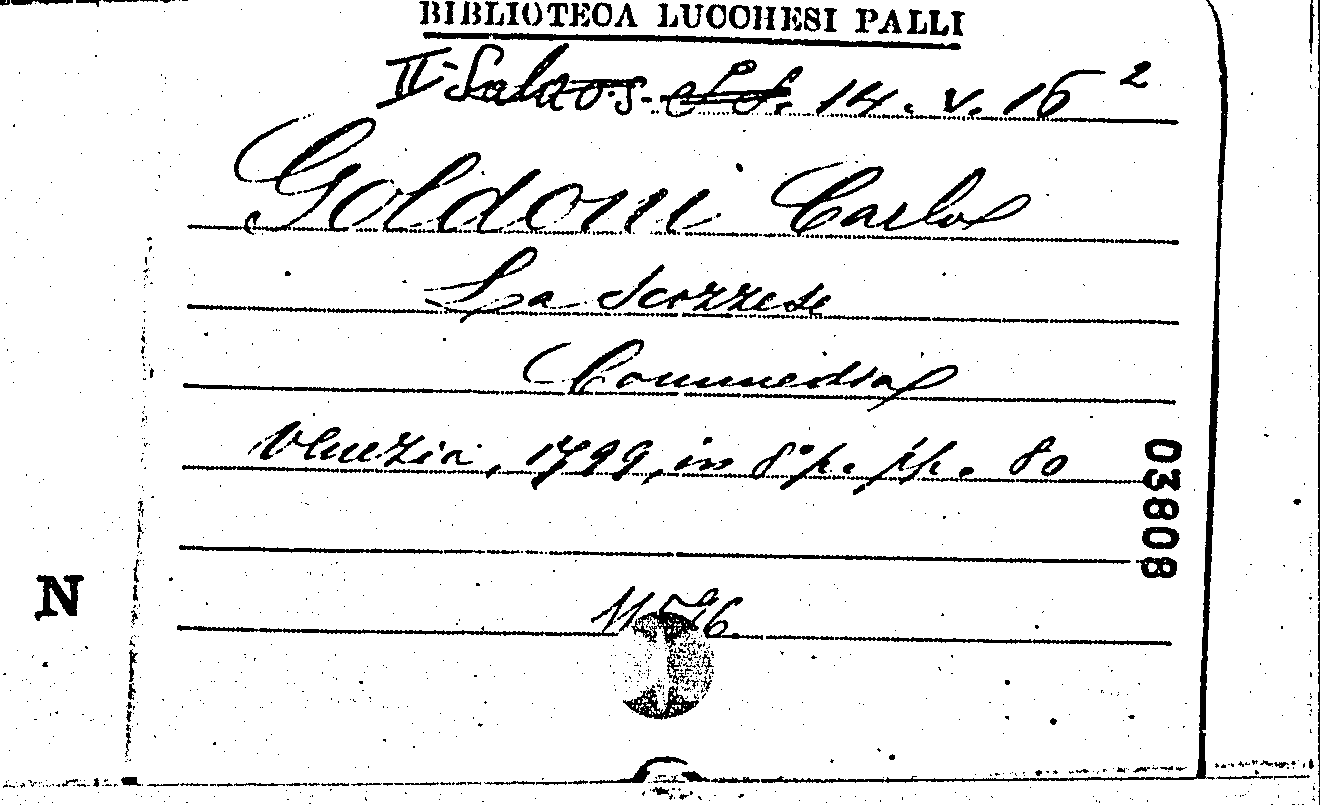 BIBLIOTECA LUCCHESI PALLI
II Sala 14. v. 16 2
Goldoni Carlo
La Scozzese
Commedia
Venezia, 1799, in 8° p. pp. 80
03808
N